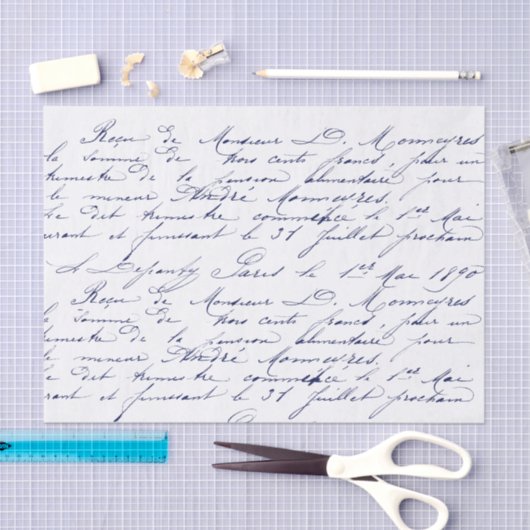 Reçu de Monsieur D. Monneyres
la somme de trois cents francs, pour un
trimestre de la pension alimentaire pour
le mineur André Monneyres.
Le dit trimestre commence le 1er Mai
urant et finissant le 31 Juillet prochain
Paris le 1er Mai 1890
Reçu de Monsieur D. Monneyres
la somme de trois cents francs, pour un
imestre de la pension alimentaire pour
le mineur André Monneyres.
Le dit trimestre commence le 1er Mai
urant et finissant le 31 Juillet prochain